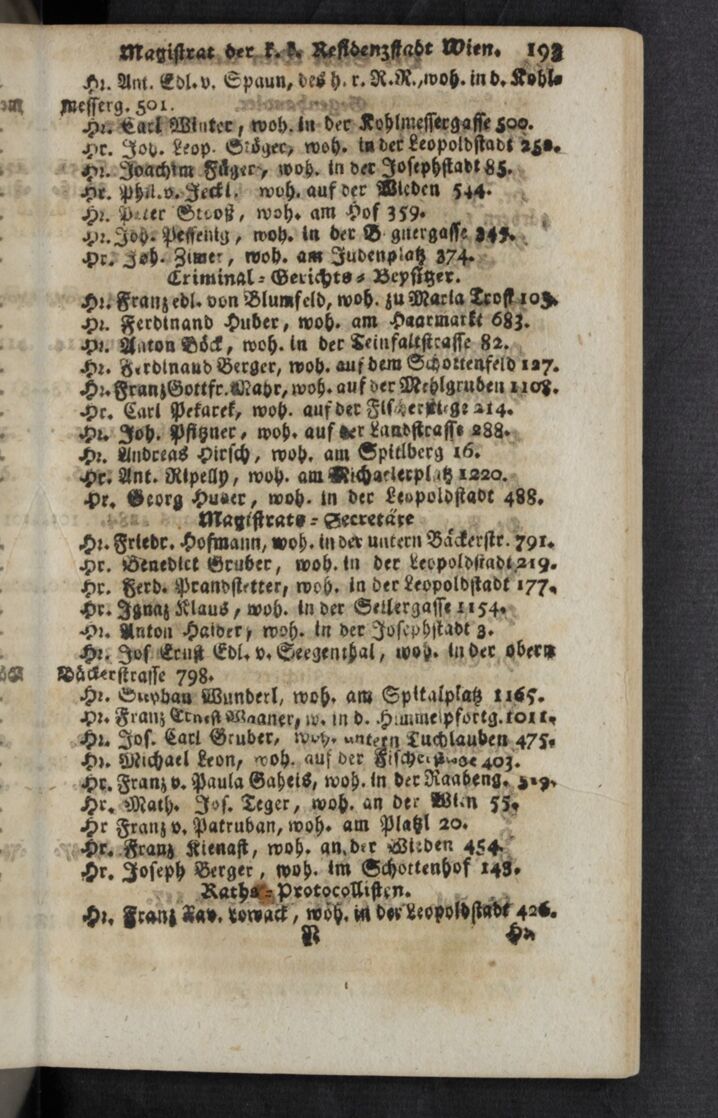 Magistrat der k. k. Residenzstadt Wien. 193
Hr. Ant. Edl. v. Spaun, des h. r. R. R., woh. in d. Kohl-
messerg. 501.
Hr. Carl Winter, woh. in der Kohlmessergasse 500.
Hr. Joh. Leop. Stöger, woh. in der Leopoldstadt
Hr. Joachim Füger, woh. in der Josephstadt 85.
Hr. Phil. v. Jeckl, woh. auf der Wieden 544.
Hr. Peter Stroß, woh. am Hof 359.
Hr. Joh. Pessenig, woh. in der Bognergasse 349.
Hr. Joh. Zimer, woh. am Judenplatz 374.
Criminal-Gerichts-Beysitzer.
Hr. Franz edl. von Blumfeld, woh. zu Maria Trost 103.
Hr. Ferdinand Huber, woh. am Haarmarkt 683.
Hr. Anton Böck, woh. in der Teinfaltstrasse 82.
Hr. Ferdinand Berger, woh. auf dem Schottenfeld 127.
Hr. Franz Gottfr. Mayr, woh. auf der Mehlgruben 1108.
Hr. Carl Pekarek, woh. auf der Fischerstiege 214.
Hr. Joh. Pfitzner, woh. auf der Landstrasse 288.
Hr. Andreas Hirsch, woh. am Spitlberg 16.
Hr. Ant. Ripelly, woh. am Michaelerplatz 1220.
Hr. Georg Huber, woh. in der Leopoldstadt 488.
Magistrats-Secretäre
Hr. Friedr. Hofmann, woh. in der untern Bäckerstr. 791.
Hr. Benedict Gruber, woh. in der Leopoldstadt 219.
Hr. Ferd. Prandstetter, woh. in der Leopoldstadt 177.
Hr. Ignaz Klaus, woh. in der Seilergasse 1154.
Hr. Anton Haider, woh. in der Josephstadt 3.
Hr. Jos Ernst Edl. v. Seegenthal, woh. in der obern
Bäckerstrasse 798.
Hr. Stephan Wunderl, woh. am Spitalplatz 1165.
Hr. Franz Ernest Waaner, w. in d. Himmelpfortg. 1011.
Hr. Jos. Carl Gruber, woh. untern Tuchlauben 475.
Hr. Michael Leon, woh. auf der Fischerstiege 403.
Hr. Franz v. Paula Gaheis, woh. in der Raabeng. 519.
Hr. Math. Jos. Teger, woh. an der Wien 55.
Hr Franz v. Patruban, woh. am Platzl 20.
Hr. Franz Kienast, woh. an der Wieden 454.
Hr. Joseph Berger, woh. im Schottenhof 148.
Raths-Protocollisten.
Hr. Franz Xav. Lowack, woh. in der Leopoldstadt 426.
N Hr.